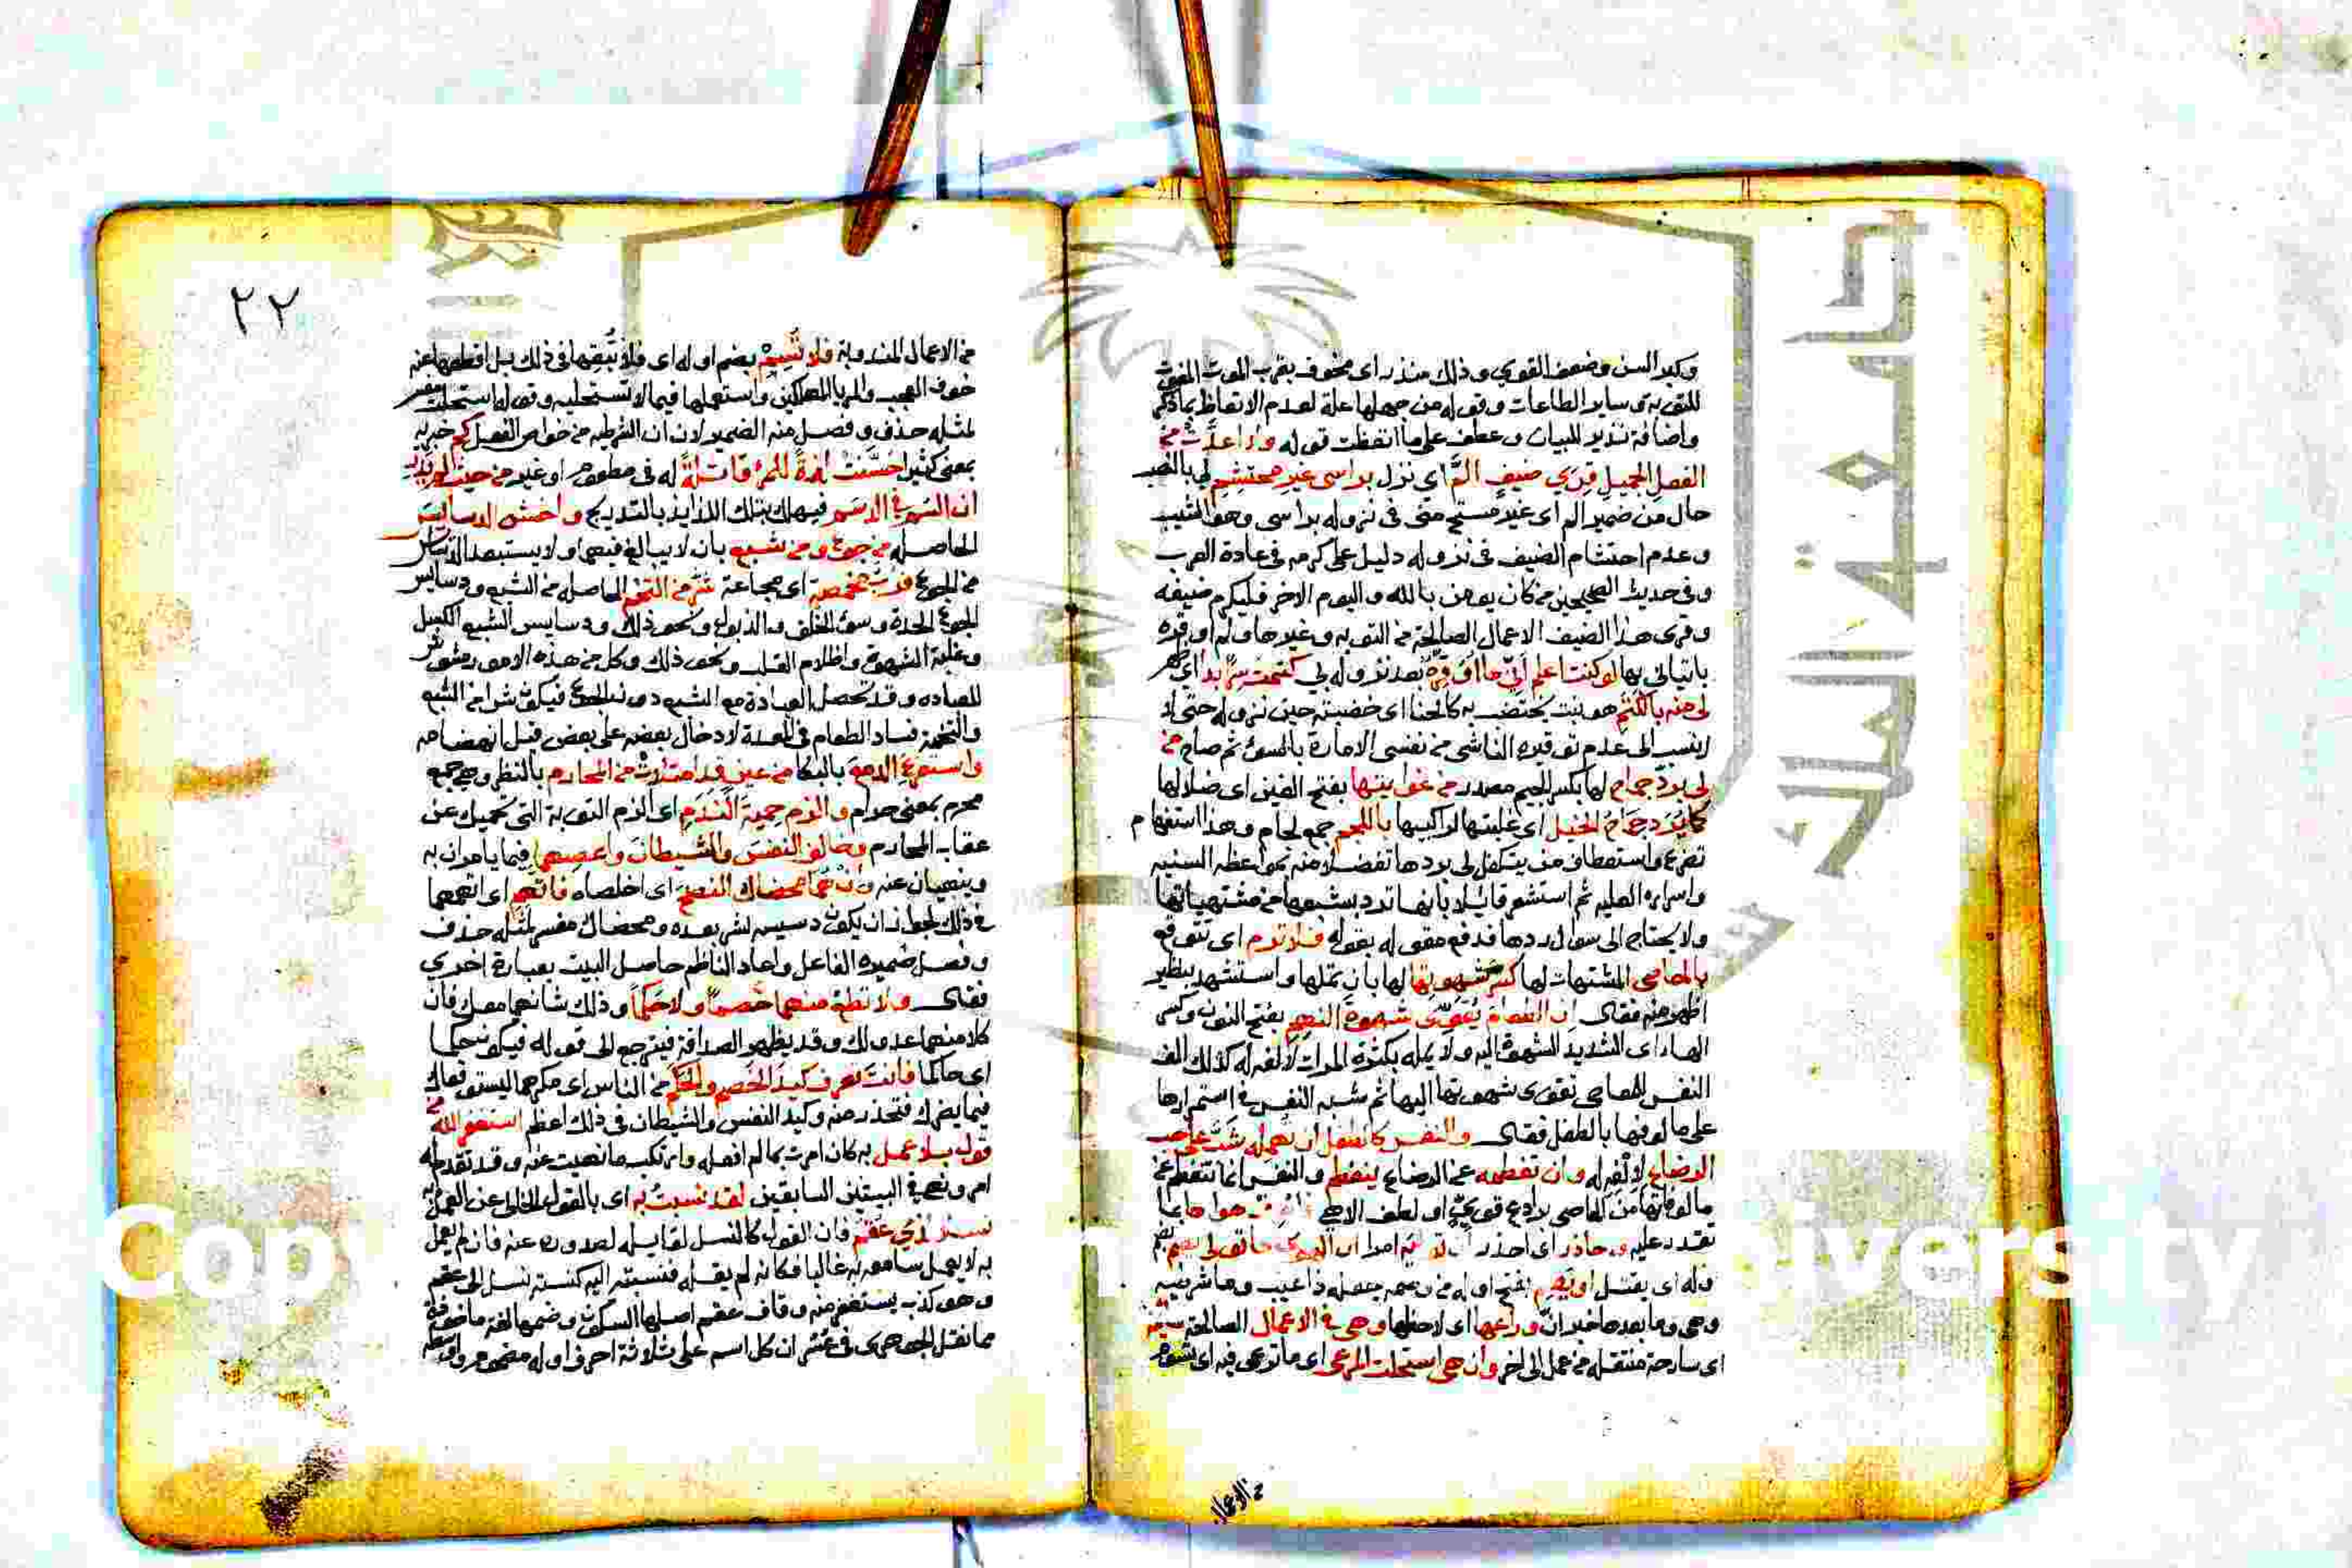 وكبر السن وضعف القوي وذلك منذر اى مخوف بقرب الموت المفوت
للتوبة وساير الطاعات وقوله من جهلها علة لعدم الاتعاظ بما ذكر
واضافة نذير للبيان وعطف على ما اتعظت قوله ولا اعدت من
الفعل الجميل قرى ضيف الم اى نزل براسى غير محتشم لى بالنصب
حال من ضمير الم اى غير مستح منى فى نزوله براسى وهو الشيب
وعدم احتشام الضيف فى نزوله دليل على كرمه فى عادة العرب
وفى حديث الصحيحين من كان يومن بالله واليوم الاخر فليكرم ضيفه
وقرى هذا الضيف الاعمال الصالحة من التوبه وغيرها ولم اوقره
باتيانى بها لو كنت اعلم انى ما اوقره بعد نزوله بى كتمت سرا بدا اى ظهر
لى منه بالكتم هو نبت يختضب به كالحنا اى خضبته حين نزوله حتى لا
انسب الى عدم توقيره الناشى من نفسى الامارة بالسوء ثم صاح من
لى برد جماح لها بكسر الجيم مصدر من غوايتها بفتح الغين اى ضلالها
كما يرد جماح الخيل اى غلبتها لراكبها باللجم جمع لجام وهذا استفهام
تضرع واستعطاف ممن يتكفل لى بردها تفضلا منه بمواعظه السنيه
واسراره العليه ثم استشعر قائلا بانها ترد بشبعها من مشتهياتها
ولا يحتاج الى سوال ردها فدفع مقوله بقوله فلا ترم اى تتوقع
بالمعاصى المشتهات لها كسر شهوتها لها بان تملها واستشهد بنظير
اظهر منه فقال ان الطعام يقوى شهوة النهم بفتح النون وكسر
الهاء اى الشديد الشهوة اليه ولا يمله بكثرة المرات لالفه له كذلك الف
النفس المعاصى تقوى شهوتها اليها ثم شبه النفس فى استمرارها
على مالوفها بالطفل فقال والنفس كالطفل ان تهمله شب على حب
الرضاع لالفه له وان تفطمه عن الرضاع ينفطم والنفس انما تنفطم عن
مالوفاتها من المعاصى برادع قوى او لطف الاهى فاصرف هواها عما
تقدر عليه وحاذر اى احذر ان توليه امرا ان الهوى ما تولى يصم بضم
اوله اى يقتل او يصم بفتح اوله من وصمه جعله ذا عيب وما شرطيه
وهى وما بعدها خبر ان وراعها اى لاحظها وهى فى الاعمال الصالحة سائمة
اى سارحة متنقله من عمل الى اخر وان هى استحلت المرعى اى ما ترعى فيه اى
من الاعمال
٢٢
من الاعمال المندوبة فلا تسم بضم اوله اى فلا تبقها فى ذلك بل اقطعها عنه
خوف العجب والريا المهلكين واستعملها فيما لا تستحليه وقوله استحلت مفسر
لمثله حذف وفصل منه الضمير لان ان الشرطيه من خواص الفعل كم خبريه
بمعنى كثير احسنت لذة للمرء قاتلة له فى مطعوم او غيره من حيث لم يدر
ان السم فى الدسم فيهلك بتلك اللذايذ بالتدريج واخش الدسايس
الحاصله من جوع ومن شبع بان لا يبالغ فيهما ولا يستبعد الدسايس
من الجوع فرب مخمصة اى مجاعة شر من التخم الحاصله من الشبع ودسايس
الجوع الحدة وسوء الخلق والذبول ونحو ذلك ودسايس الشبع الكسل
وغلبة الشهوة واظلام القلب ونحو ذلك وكل من هذه الامور مشوش
للعباده وقد تحصل العبادة مع الشبع دون الجوع فيكون شرا من الشبع
والتخمة فساد الطعام فى المعدة لادخال بعضه على بعض قبل انهضامه
واستفرغ الدمع بالبكا من عين قد امتلات من المحارم بالنظر وهى جمع
محرم بمعنى حرام والزم حمية الندم اى الزم التوبة التى تحميك عن
عقاب المحارم وخالف النفس والشيطان واعصهما فيما يامران به
وينهيان عنه وان هما محضاك النصح اى اخلصاه فاتهم اى اتهمهما
فى ذلك لجواز ان يكون دسيسه لشر بعده ومحضاك مفسر لمثله حذف
وفصل ضميره الفاعل واعاد الناظم حاصل البيت بعبارة اخرى
فقال ولا تطع منهما خصما ولا حكما وذلك شانهما معك فان
كلا منهما عدو لك وقد يظهر الصداقة فيرجع الى قوله فيكون حكما
اى حاكما فانت تعرف كيد الخصم والحكم من الناس اى مكرهما ليستوفعاك
فيما يضرك فتحذر منه وكيد النفس والشيطان فى ذلك اعظم استغفر الله من
قول بلا عمل به كان امرت بما لم افعله وارتكب ما نهيت عنه وقد تقدم له
امر ونهى فى البيتين السابقين لقد نسبت به اى بالقول الخالى عن العمل به
نسلا لذى عقم فان القول كالنسل لقايله لصدوره عنه فان لم يعمل
به لا يعمل سامعه به غالبا فكانه لم يقله فنسبته اليه كنسبة نسل الى عقيم
وهو كذب يستغفر منه وقاف عقم اصلها السكون وضمها لغة ماخوذة
مما نقل الجوهرى فى عشر ان كل اسم على ثلاثة احرف اوله مضموم واوسطه